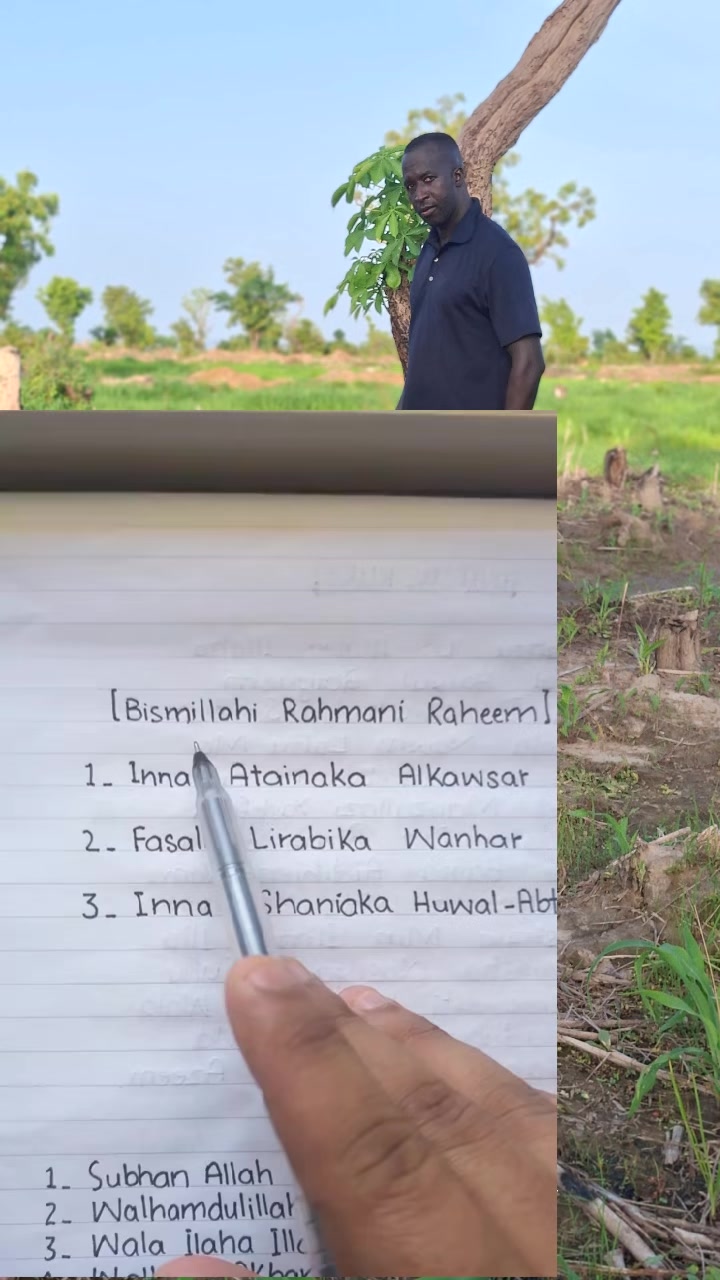 [Bismillahi Rahmani Raheem]
1- Inna Atainaka Alkawsar
2- Fasal Lirabika Wanhar
3- Inna Shaniaka Huwal-Abt
1- Subhan Allah
2- Walhamdulillah
3- Wala ilaha Illa